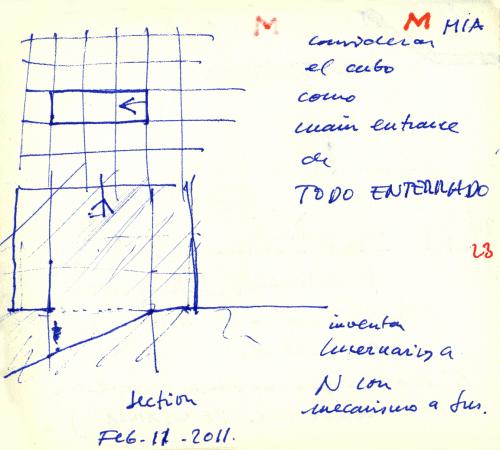 M
M MIA
considerar
el cubo
como
main entrance
de
TODO ENTERRADO
23
inventar
lucernarios a
N con
mecanismo a
section
Feb-11-2011.